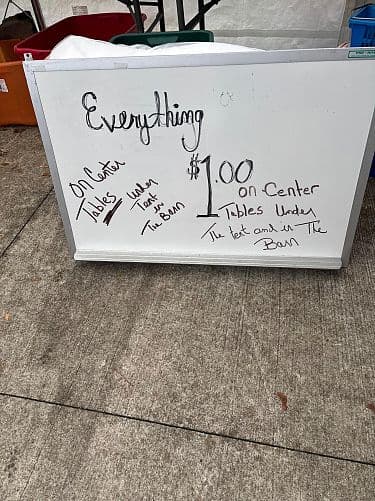 Everything
$1.00
on Center
Tables Under
The tent and in The
Barn
On Center
Tables
Under
Tent
in
The Barn